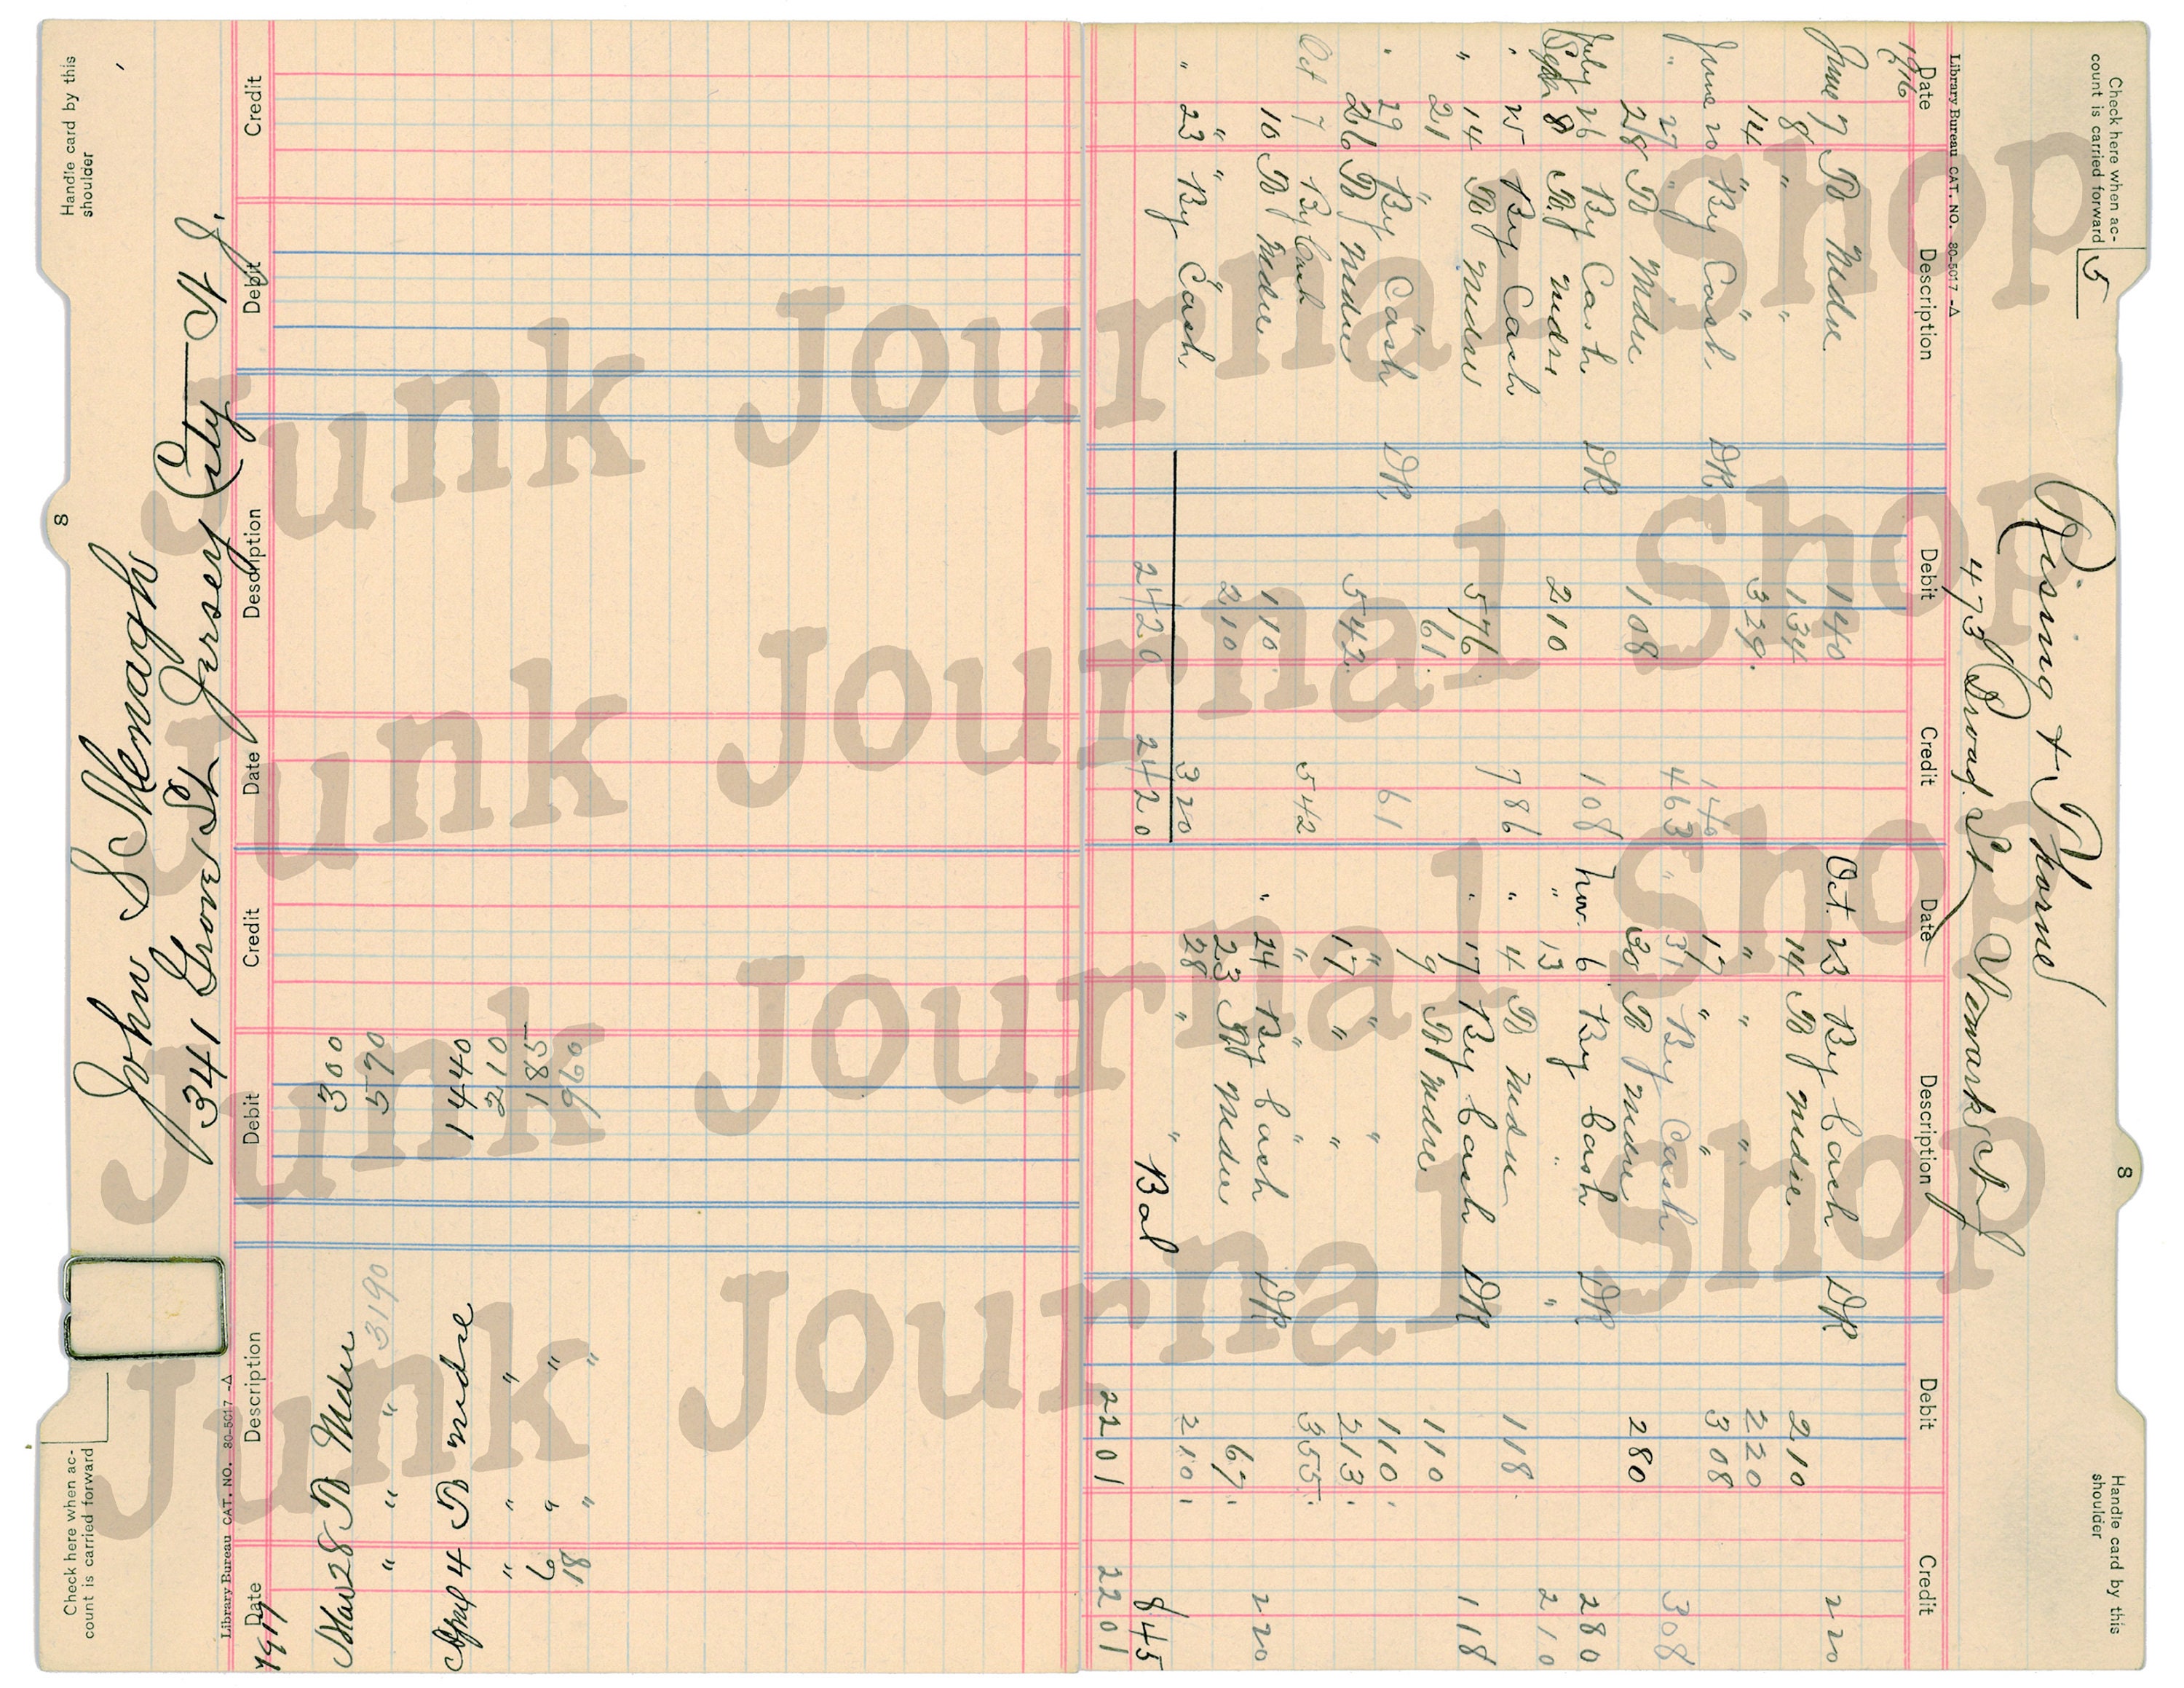 Check here when ac-
count is carried forward
5
Rising & Thorne
8
Handle card by this
shoulder
473 Broad St Newark N J
Library Bureau CAT. NO. 30-5017-A
Date Description Debit Credit Date Description Debit Credit
1916
June 7 To Mdse 140 Oct 23 By Cash DR 220
8 " " 134 14 To Mdse 210
14 " " 329 " " " 220
June 20 By Cash DR 140 17 " " 308
" 27 " " 463 31 By Cash 308
28 To Mdse 108 30 To Mdse 280
July 26 By Cash DR 108 Nov. 6 By Cash DR 280
Sept 8 To Mdse 210 " 13 " " 210
" 25 By Cash 786 " 4 To Mdse 118
" 14 To Mdse 576 " 17 By Cash DR 118
21 " " 61 9 To Mdse 110
" 29 By Cash DR 61 " " " 110
26 To Mdse 542 17 " " 213
Oct 7 By Cash 542 " " " 355
10 To Mdse 110 " 24 By Cash DR 220
" " 210 23 To Mdse 67
" 23 By Cash 320 28 " " 210
2420 2420 Bal 845
2201 2201
Check here when ac-
count is carried forward
8
Handle card by this
shoulder
John S
341 Grove St Jersey City N J.
Library Bureau CAT. NO. 30-5017-A
Date Description Debit Credit Date Description Debit Credit
1917
Mar 28 To Mdse 300
" " " 3190 590
April 4 To Mdse 1440
" " " 210
9 " " 185
18 " " 960
Junk Journal Shop
Junk Journal Shop
Junk Journal Shop
Junk Journal Shop